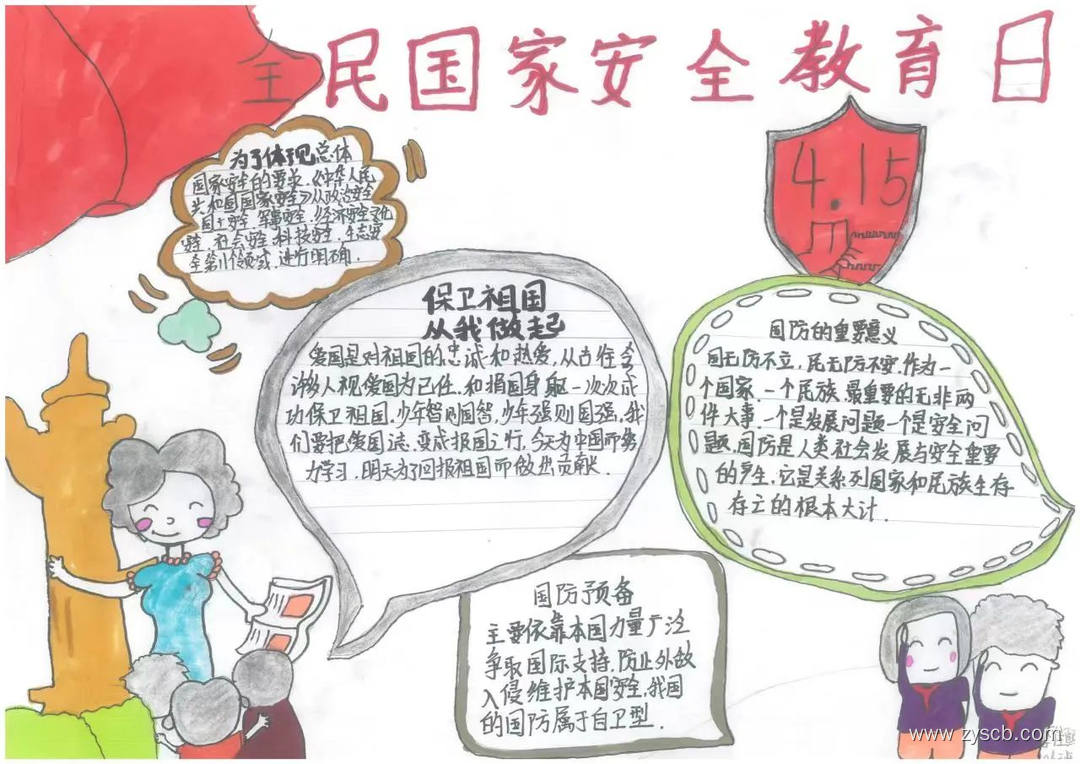 全民国家安全教育日
4.15
为了体现总体
国家安全的要求,《中华人民
共和国国家安全》从政治安全
国土安全 军事安全、经济安全文化
安全 社会安全、科技安全、生态安
全第11个领域,进行明确.
保卫祖国
从我做起
爱国是对祖国的忠诚和热爱,从古往今
许多人视爱国为己任,和捐国身躯一次次成
功保卫祖国,少年智则国智,少年强则国强,我
们要把爱国志、变成报国之行,今天为中国而努
力学习,明天为了回报祖国而做出贡献.
国防的重要意义
国无防不立,民无防不安,作为一
个国家、一个民族,最重要的无非两
件大事、一个是发展问题一个是安全问
题,国防是人类社会发展与安全重要
的产生,它是关系到国家和民族生存
存亡的根本大计.
国防预备
主要依靠本国力量广泛
争取国际支持,防止外敌
入侵维护本国安全,我国
的国防属于自卫型.
www.zyscb.com